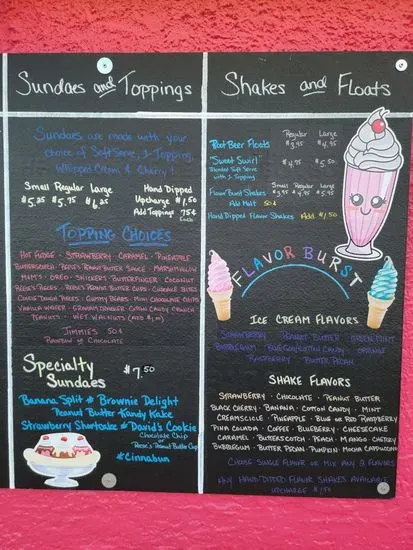 Sundaes and Toppings
Sundaes are made with your
choice of Soft Serve, 1 Topping,
Whipped Cream & Cherry!
Small Regular Large
$5.25 $5.75 $6.25
Hand Dipped
Upcharge $1.50
Add Toppings 75¢
Each
Topping Choices
Hot Fudge - Strawberry - Caramel - Pineapple
Butterscotch - Reese's Peanut Butter Sauce - Marshmallow
M&M's - Oreo - Snickers - Butterfinger - Coconut
Reese's Pieces - Reese's Peanut Butter Cups - Cookie Bits
Cookie Dough Pieces - Gummy Bears - Mini Chocolate Chips
Vanilla Wafer - Graham Cracker - Cotton Candy Crunch
Peanuts - Wet Walnuts (add $1.00)
Jimmies 50¢
Rainbow or Chocolate
Specialty
Sundaes $7.50
Banana Split * Brownie Delight
Peanut Butter Kandy Kake
Strawberry Shortcake * David's Cookie
Chocolate Chip
or
Reese's Peanut Butter Cup
* Cinnabun
Shakes and Floats
Regular Large
Root Beer Floats $3.95 $4.95
"Sweet Swirl" $4.75 $5.50
Blended Soft Serve
with 1 Topping
Small Regular Large
Flavor Burst Shakes $3.95 $4.95 $5.95
Add Malt 50¢
Hand Dipped Flavor Shakes Add $1.50
FLAVOR BURST
Ice Cream Flavors
Strawberry Peanut Butter Green Mint
Bubblegum Blue Cotton Candy Orange
Raspberry Butter Pecan
Shake Flavors
Strawberry · Chocolate · Peanut Butter
Black Cherry · Banana · Cotton Candy · Mint
Creamsicle · Pineapple · Blue or Red Raspberry
Pina Colada · Coffee · Blueberry · Cheesecake
Caramel · Butterscotch · Peach · Mango · Cherry
Bubblegum · Butter Pecan · Pumpkin · Mocha Cappuccino
Choose Single Flavor or Mix Any 2 Flavors
Any Hand-Dipped Flavor Shakes Available
Upcharge $1.50